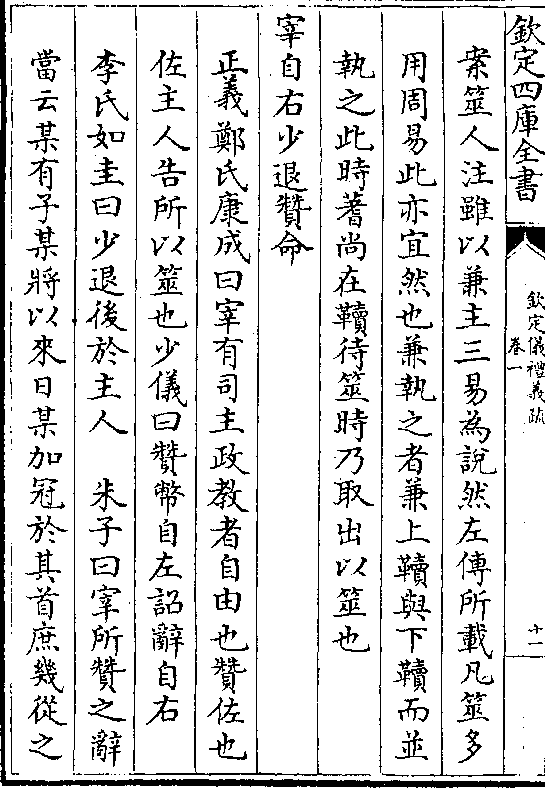 欽定四庫全書
欽定儀禮義疏
卷一
十一
案筮人注雖以兼主三易為說然左傳所載凡筮多
用周易此亦宜然也兼執之者兼上韇與下韇而並
執之此時蓍尚在韇待筮時乃取出以筮也
宰自右少退贊命
正義鄭氏康成曰宰有司主政教者自由也贊佐也
佐主人告所以筮也少儀曰贊幣自左詔辭自右
李氏如圭曰少退後於主人　朱子曰宰所贊之辭
當云某有子某將以來日某加冠於其首庶幾從之